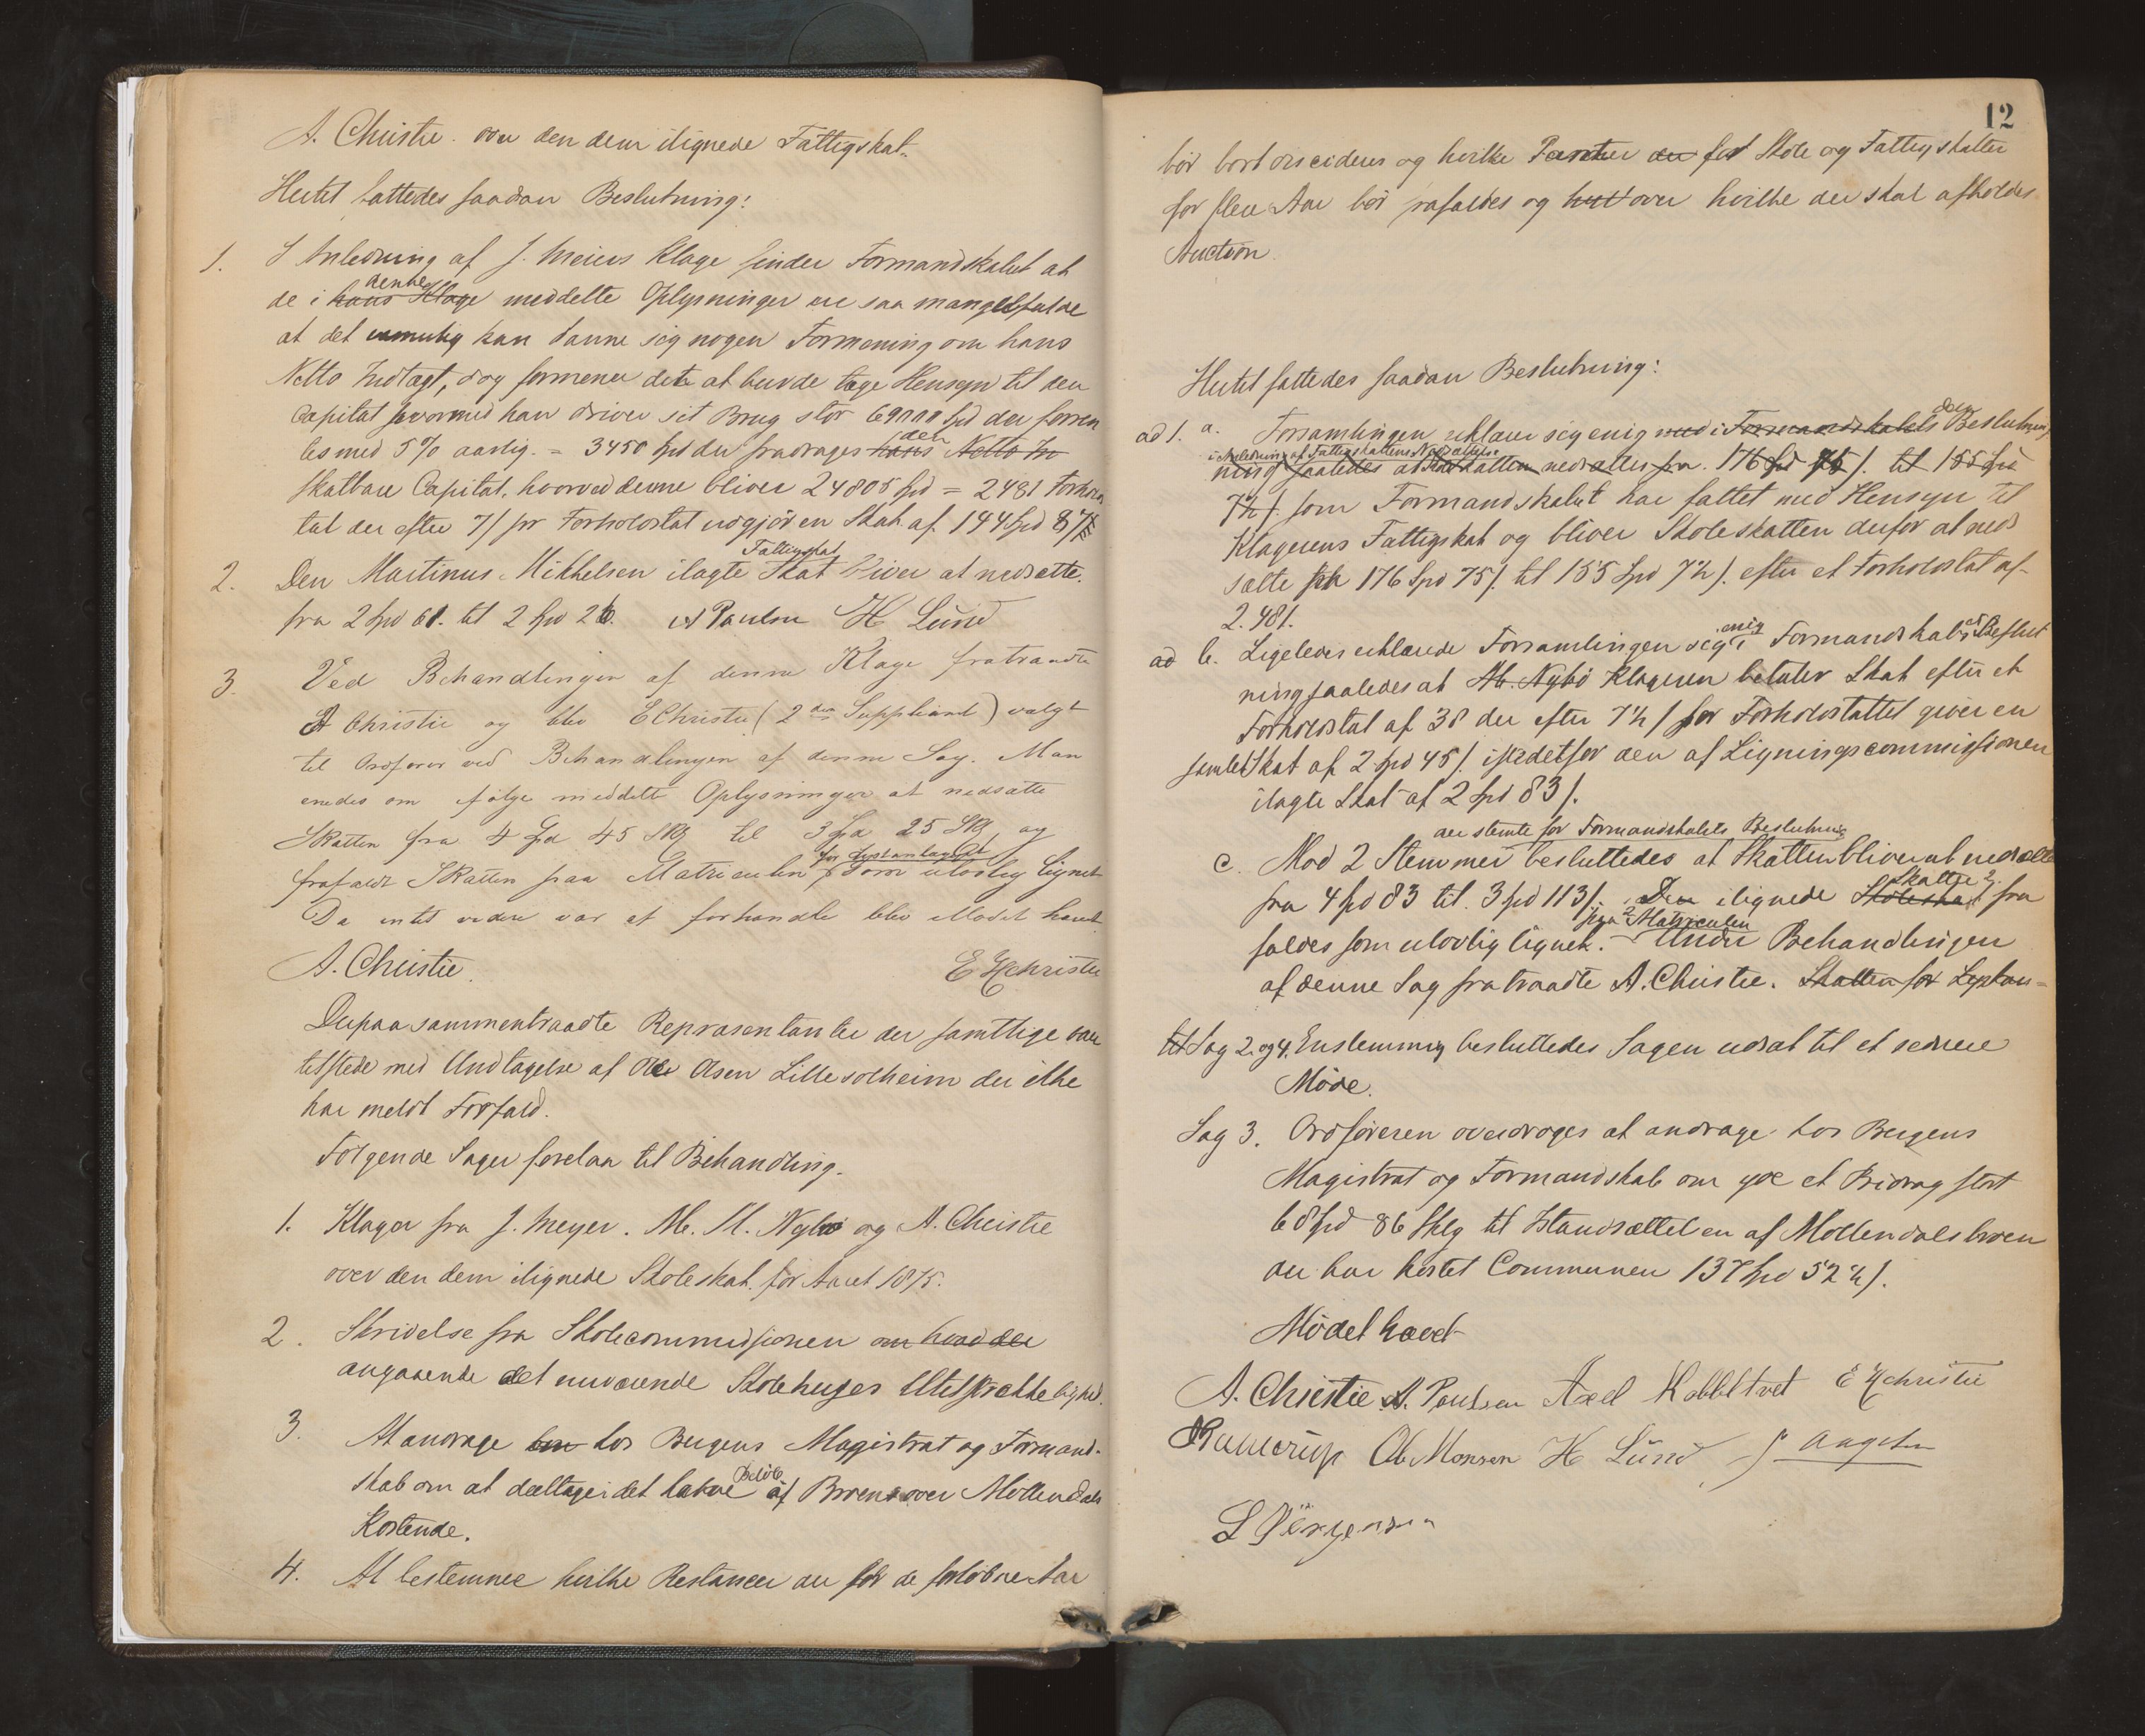 A. Christie. over den dem ilignede Fattigskat.
Hertil fattedes saadan Beslutning:
1. I Anledning af J. Meiers Klage finder Formandskabet at
denne
de i hans Klage meddelte Oplysninger ere saa mangelfulde
at det umulig kan danne sig nogen Formening om hans
Netto Indtægt, dog formener dette at burde tage Hensyn til den
Capital hvormed han driver sit Brug stor 69000 spd der forren
tes med 5% aarlig. = 3450 spd der fradrages hans Netto In
den
skatbare Capital, hvorved denne bliver 24805 spd = 2481 Forholds
tal der efter 7 s pr Forholdstal udgjør en Skat af. 144 spd 87
2. Den Martinus Mikkelsen ilagte Skat bliver at nedsætte.
Fattigskat
fra 2 spd 61. til 2 spd 26. A Paulsen H Lund
3. Ved Behandlingen af denne Klage fratraadte
A Christie og blev E Christie (2den Suppliant) valgt
til Ordfører ved Behandlingen af denne Sag. Man
enedes om ifølge meddelte Oplysninger at nedsætte
Skatten fra 4 spd 45 Sk til 3 spd 25 Sk, og
frafaldt Skatten paa Matriculen som ulovlig lignet
Da intet videre var at forhandle blev Mødet hævet
A. Christie. E Hchristie
Derpaa sammentraadte Repræsentanter der samtlige vare
tilstede med Undtagelse af Ole Olsen Lillesolheim der ikke
har meldt Forfald.
Følgende Sager forelaa til Behandling.
1. Klager fra J. Meyer. M. M. Nybø og A. Christie
over den dem ilignede Skoleskat for Aaret 1875.
2. Skrivelse fra Skolecommissionen om hvad der
angaaende det nuværende Skolehuses Utilstrækkelighed.
3. At andrage hos Bergens Magistrat og Formand-
skab om at deeltage i det halve Beløb af Broens over Møllendals
Kostende.
4. At bestemme hvilke Restancer der for de forløbne Aar
12
bør bortdecideres og hvilke Panter der for Skole og Fattigskatter
for flere Aar bør frafaldes og over hvilke der skal afholdes
Auction.
Hertil fattedes saadan Beslutning:
ad 1. a. Forsamlingen erklærer sig enig med i Formandskabets den Beslutning
i Anledning af Fattigskattens Nedsættelse
ning saaledes at Skatten nedsættes fra. 176 spd 75 s. til 155 spd
7½ s. som Formandskabet har fattet med Hensyn til
Klagerens Fattigskat og bliver Skoleskatten derfor at ned
sætte fra 176 Spd 75 s. til 155 Spd 7½ s. efter et Forholdstal af
2.481.
ad b. Ligeledes erklærede Forsamlingen sig enig i Formandskabets Beslut
ning saaledes at M. Nybø Klageren betaler Skat efter et
Forholdstal af 38 der efter 7½ s for Forholdstallet giver en
samlet Skat af 2 spd 45 s. istedetfor den af Ligningscommissionen
ilagte Skat af 2 spd 83 s.
der stemte for Formandskabets Beslutning
c. Mod 2 Stemmer besluttedes at Skatten bliver at nedsætte
fra 4 spd 83 til 3 spd 113 s. Den ilignede Skoleskat fra
Skat
paa Matriculen
faldes som ulovlig lignet. Under Behandlingen
af denne Sag fratraadte A. Christie. Skatten for Lystan-
til Sag 2. og 4. Enstemmig besluttedes Sagen udsat til et senere
Møde.
Sag 3. Ordføreren overdroges at andrage hos Bergens
Magistrat og Formandskab om yde et Bidrag stort
68 spd 86 skg til Istandsættelsen af Møllendalsbroen
der har kostet Communen 137 spd 52½ s.
Mødet hævet
A. Christie A. Paulsen Axel Kobbeltvet E Hchristie
Ab. Monsen H Lund
L Jörgensen